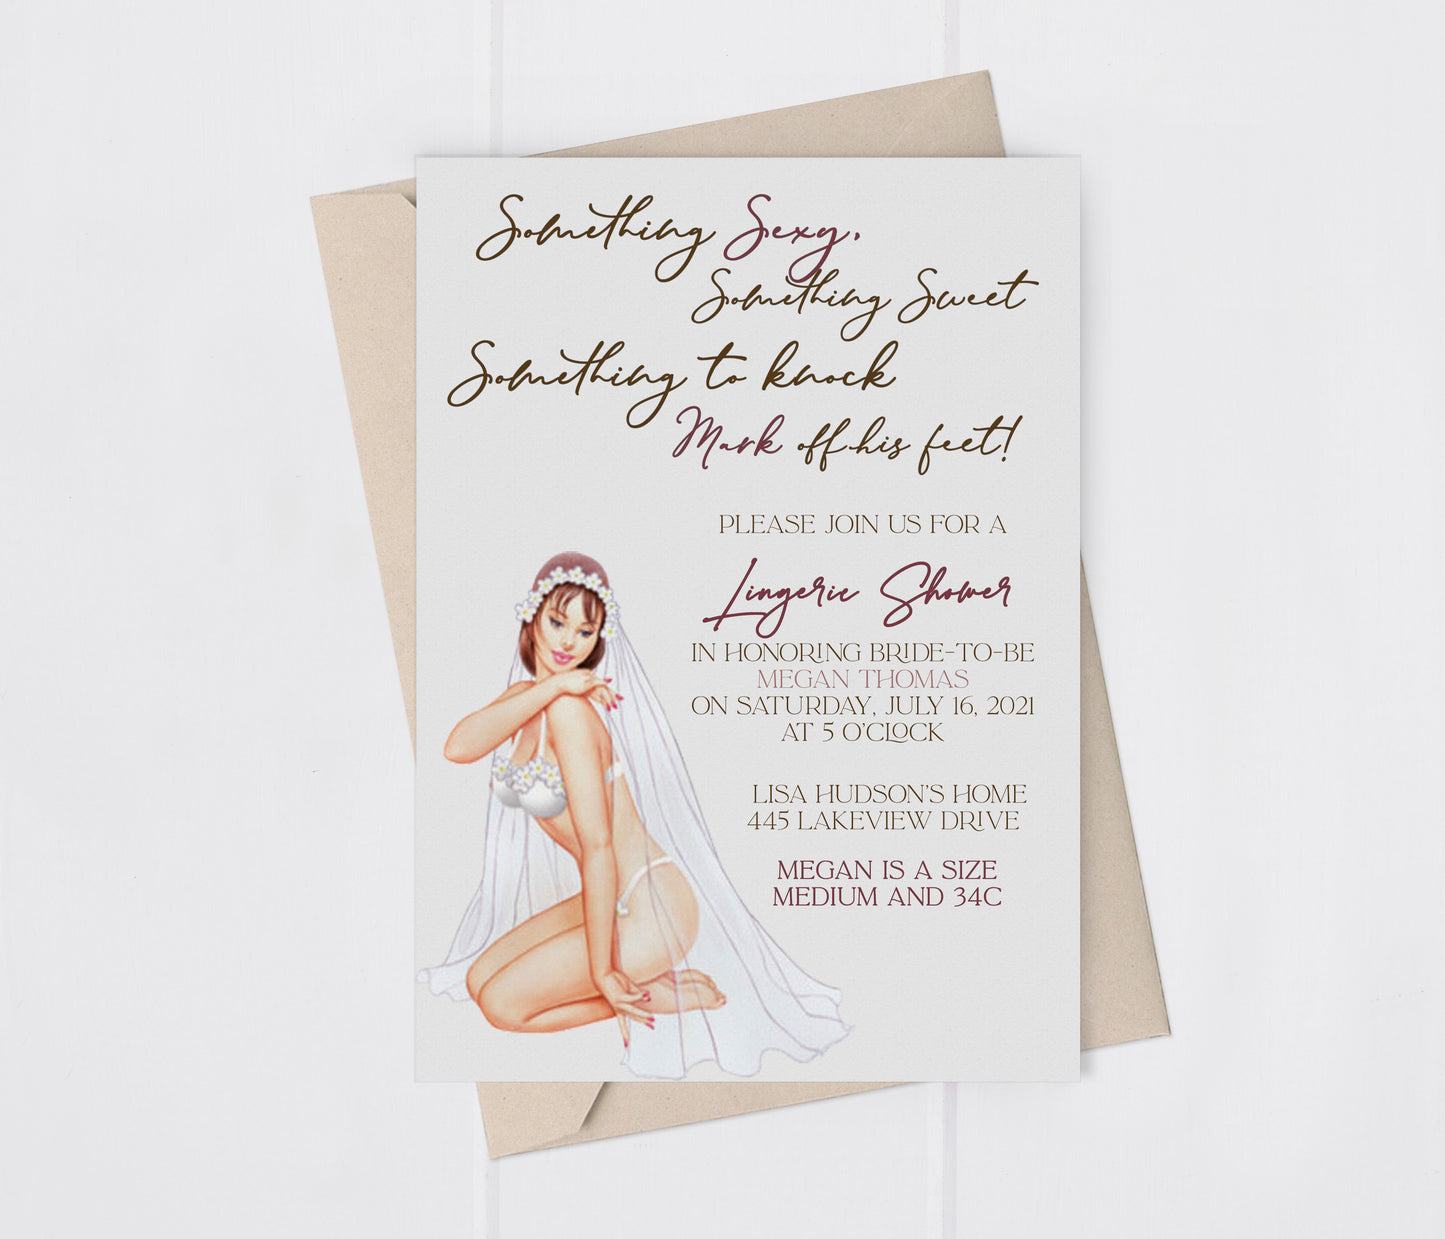 Something Sexy,
Something Sweet
Something to knock
Mark off his feet!
PLEASE JOIN US FOR A
Lingerie Shower
IN HONORING BRIDE-TO-BE
MEGAN THOMAS
ON SATURDAY, JULY 16, 2021
AT 5 O'CLOCK
LISA HUDSON'S HOME
445 LAKEVIEW DRIVE
MEGAN IS A SIZE
MEDIUM AND 34C